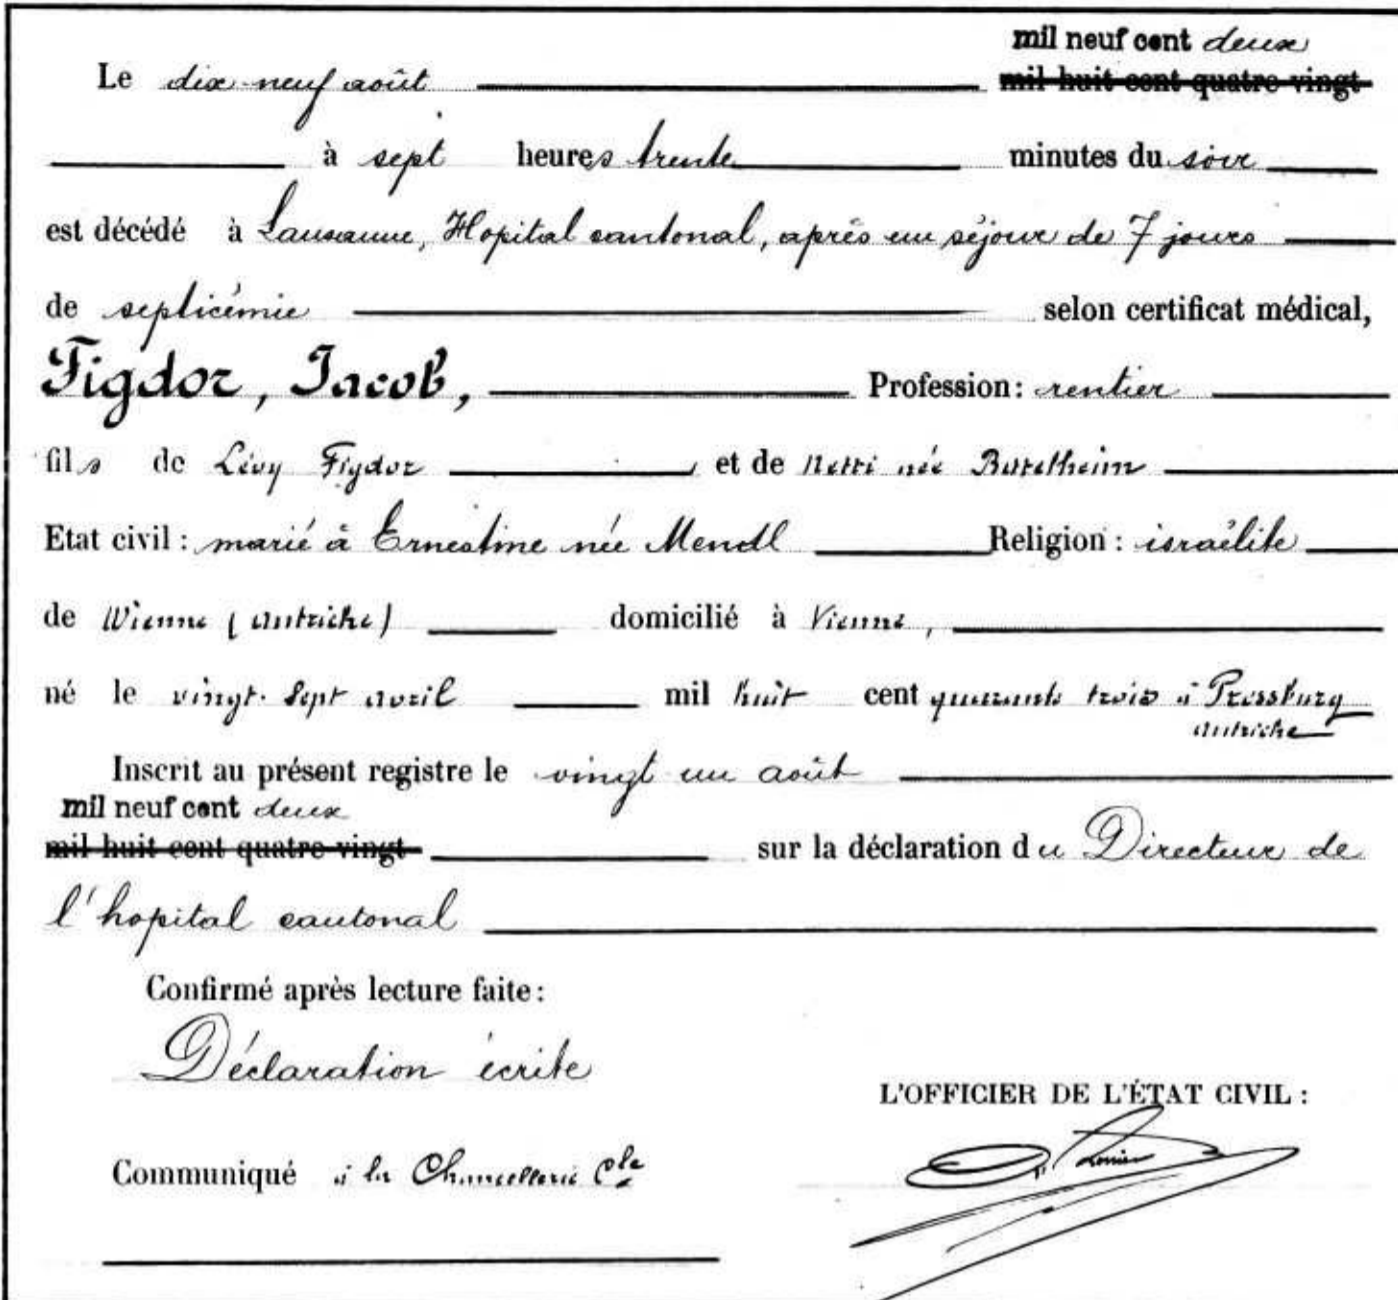 mil neuf cent deux
Le dix neuf août mil huit cent quatre-vingt
à sept heures trente minutes du soir
est décédé à Lausanne, Hopital cantonal, après un séjour de 7 jours
de septicémie selon certificat médical,
Figdor, Jacob, Profession: rentier
fils de Lévy Figdor et de Netti née
Etat civil: marié à Ernestine née Mendl Religion: israélite
de Vienne (Autriche) domicilié à Vienne,
né le vingt-sept avril mil huit cent quarante trois à Pressburg
Autriche
Inscrit au présent registre le vingt un août
mil neuf cent deux
mil huit cent quatre-vingt sur la déclaration du Directeur de
l'hopital cantonal
Confirmé après lecture faite:
Déclaration écrite
L'OFFICIER DE L'ÉTAT CIVIL:
Communiqué à la Chancellerie Cle